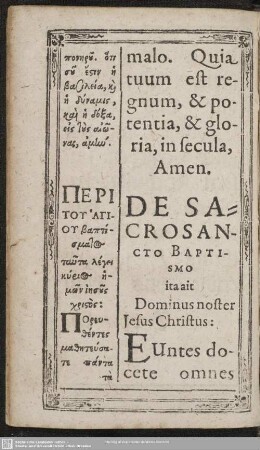 πονηροῦ. ὅτι
σῦ ἐςιν ἡ
βασιλεία, κὶ
ἡ δύναμις,
καὶ ἡ δόξα,
εἰς τοὺς αἰῶ-
νας, ἀμήν.
ΠΕΡΙ
ΤΟΥ ἉΓΙ-
ΟΥ βαπτί-
σματος
ταῦτα λέγει
κύριος ἡ-
μῶν ἰησοῦς
χριςός:
ΠΟρευ-
θέντες
μαθητεύσα-
τε πάντα
τὰ
malo. Quia
tuum est re-
gnum, & po-
tentia, & glo-
ria, in secula,
Amen.
DE SA-
CROSAN-
CTO BAPTI-
SMO
ita ait
Dominus noster
Jesus Christus:
EUntes do-
cete omnes